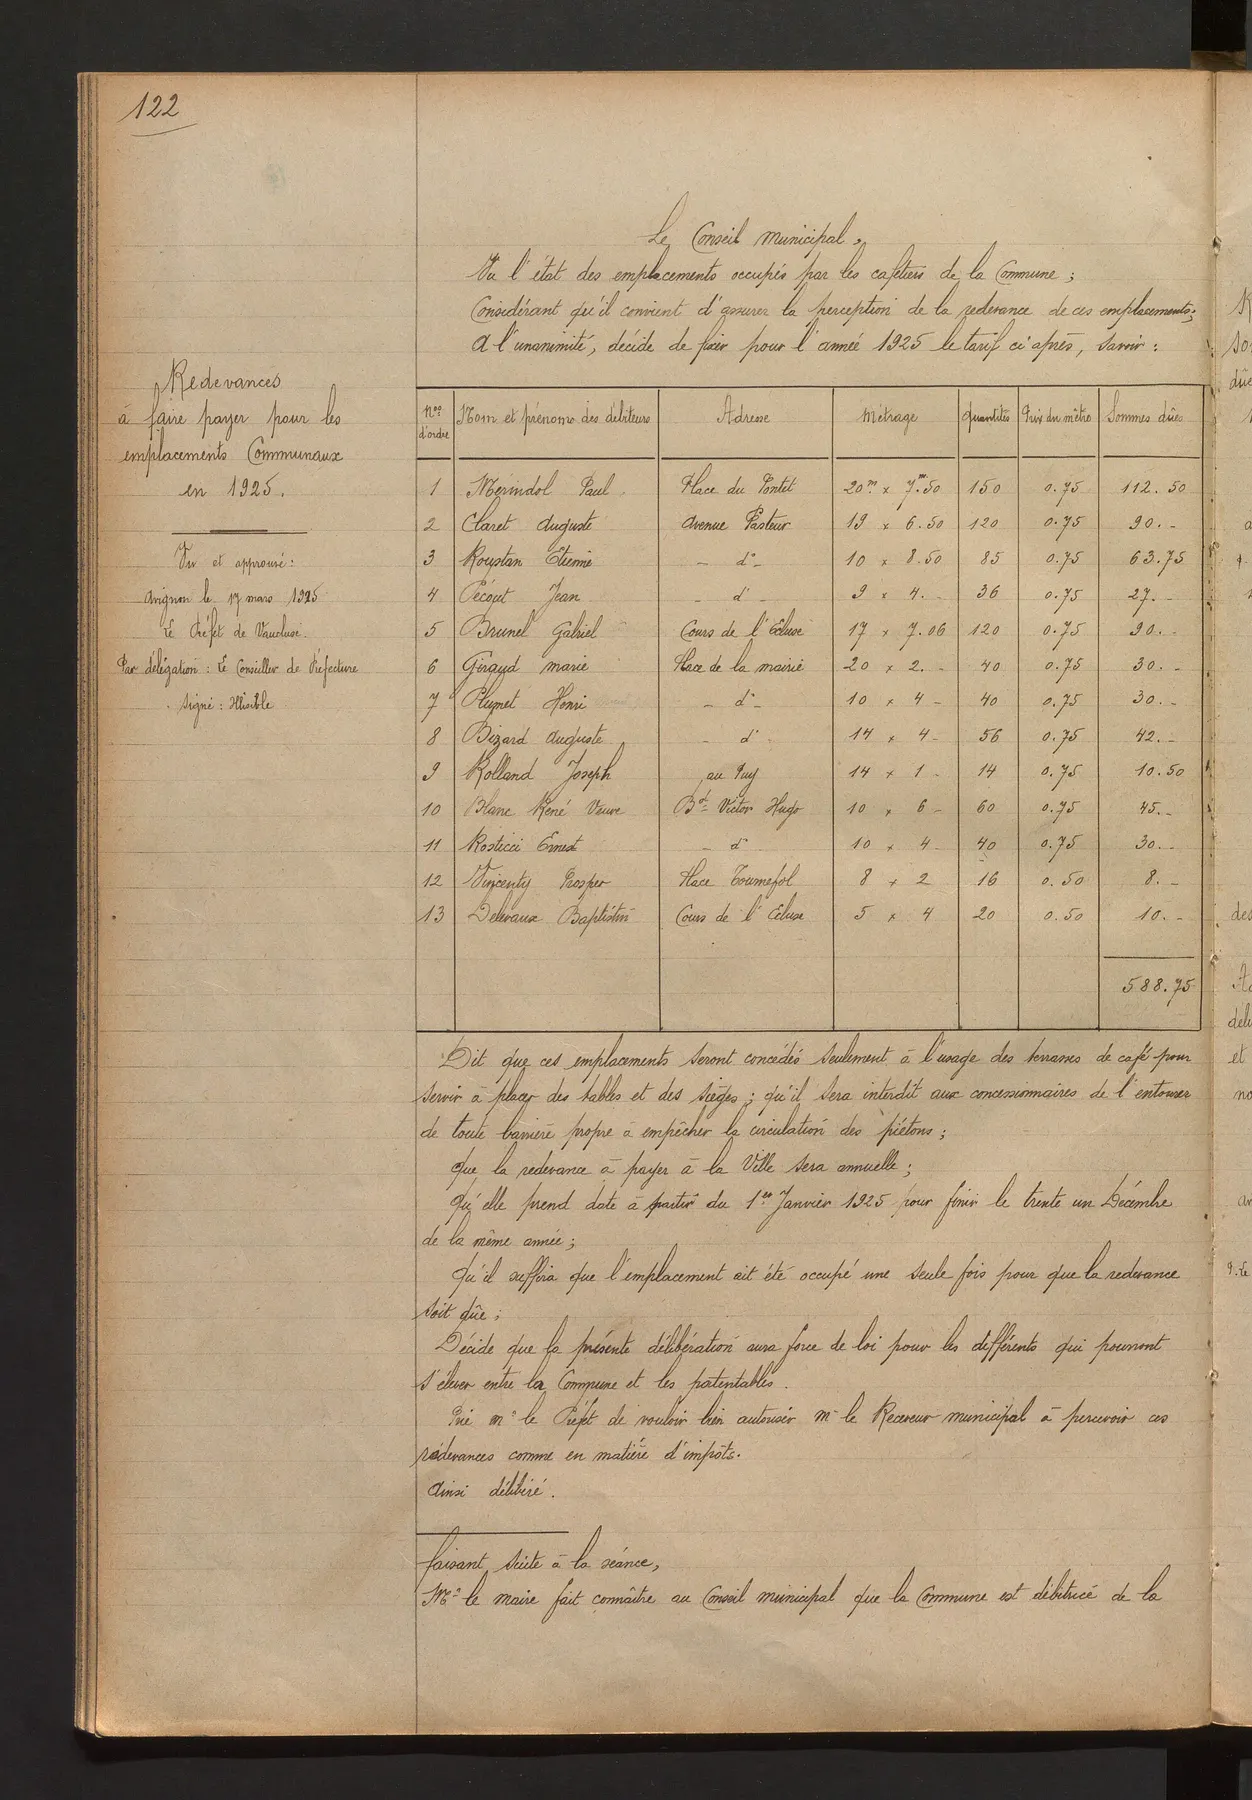 122
Redevances
à faire payer pour les
emplacements Communaux
en 1925.
Vu et approuvé :
Avignon le 17 mars 1925
Le Préfet de Vaucluse.
Par délégation : Le Conseiller de Préfecture
Signé : Illisible
Le Conseil Municipal,
Vu l'état des emplacements occupés par les cafetiers de la Commune ;
Considérant qu'il convient d'assurer la perception de la redevance de ces emplacements ;
A l'unanimité, décide de fixer pour l'année 1925 le tarif ci après, savoir :
Nos d'ordre Nom et prénoms des débiteurs Adresse Métrage Quantités Prix du mètre Sommes dûes
1 Mérindol Paul Place du Pontet 20m x 7m.50 150 0.75 112.50
2 Claret Auguste Avenue Pasteur 19 x 6.50 120 0.75 90.-
3 Roustan Etienne - do - 10 x 8.50 85 0.75 63.75
4 Pécout Jean - do - 9 x 4.- 36 0.75 27.-
5 Brunel Gabriel Cours de l'Ecluse 17 x 7.06 120 0.75 90.-
6 Giraud Marie Place de la mairie 20 x 2.- 40 0.75 30.-
7 Henri - do - 10 x 4 - 40 0.75 30.-
8 Bizard Auguste - do - 14 x 4 - 56 0.75 42.-
9 Rolland Joseph au Puy 14 x 1 - 14 0.75 10.50
10 Blanc René Veuve Bd Victor Hugo 10 x 6 - 60 0.75 45.-
11 Rosticci Ernest - do 10 x 4 - 40 0.75 30.-
12 Vincenty Prosper Place Tournefol 8 x 2 16 0.50 8.-
13 Delevaux Baptistin Cours de l'Ecluse 5 x 4 20 0.50 10.-
588.75
Dit que ces emplacements seront concédés seulement à l'usage des terrasses de café pour
servir à placer des tables et des sièges ; qu'il sera interdit aux concessionnaires de l'entourer
de toute barrière propre à empêcher la circulation des piétons ;
Que la redevance à payer à la Ville sera annuelle ;
Qu'elle prend date à partir du 1er Janvier 1925 pour finir le trente un Décembre
de la même année ;
Qu'il suffira que l'emplacement ait été occupé une seule fois pour que la redevance
soit dûe ;
Décide que la présente délibération aura force de loi pour les différents qui pourront
s'élever entre la Commune et les patentables.
Prie Mr le Préfet de vouloir bien autoriser Mr le Receveur municipal à percevoir ces
redevances comme en matière d'impôts.
Ainsi délibéré.
Faisant suite à la séance,
Mr le maire fait connaître au Conseil municipal que la Commune est débitrice de la